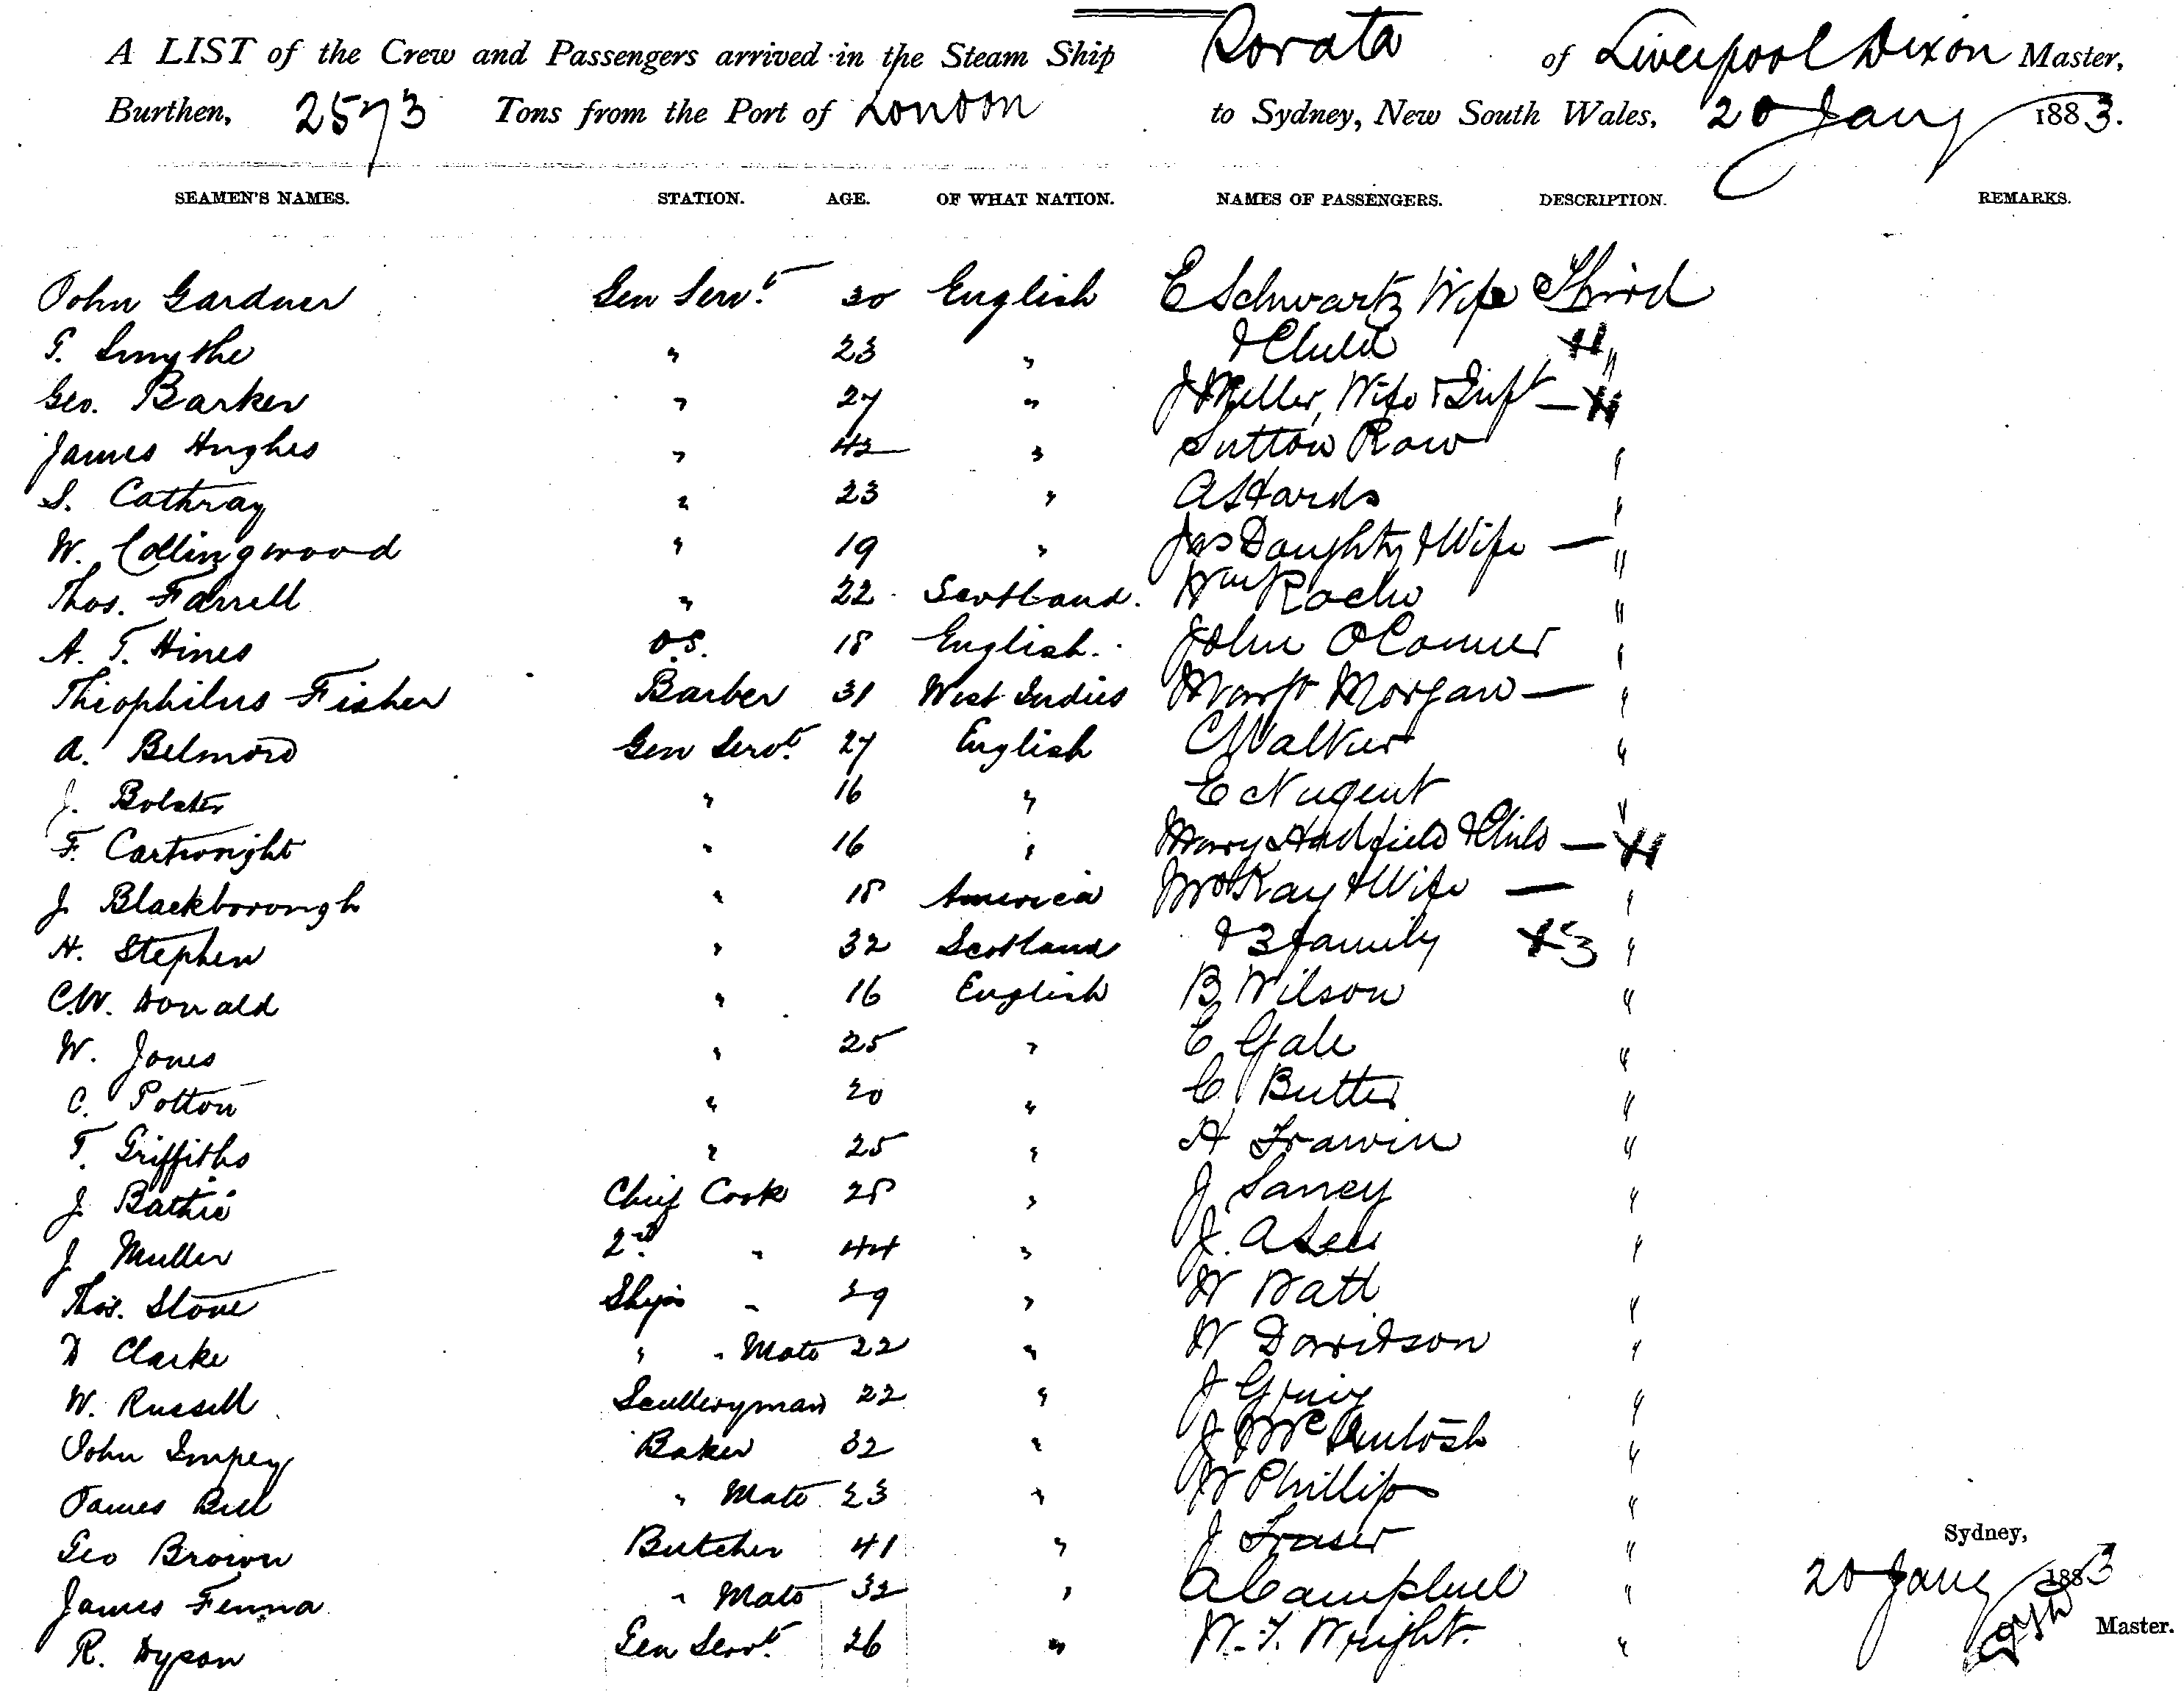 A LIST of the Crew and Passengers arrived in the Steam Ship Sorata of Liverpool Dixon Master,
Burthen, 2573 Tons from the Port of London to Sydney, New South Wales, 20 Jany 1883.
SEAMEN'S NAMES. STATION. AGE. OF WHAT NATION. NAMES OF PASSENGERS. DESCRIPTION. REMARKS.
John Gardner Gen Servt. 30 English E Schwartz Wife Third
T. Smythe " 23 " & Child "
Geo. Barker " 27 " J Meller, Wife & Inft — "
James Hughes " 42 " Sutton Row "
S. Cathray " 23 " A Hards "
W. Collingwood " 19 " Jas Doughty & Wife — "
Thos. Farrell " 22 Scotland. Wm Roche "
A. T. Hines O.S. 18 English. John OConner "
Theophilus Fisher Barber 31 West Indies Margt Morgan — "
A. Belmore Gen Servt. 27 English C Walker "
J. Bolster " 16 " E Nugent "
F. Cartwright " 16 " Mary Hadfield & Child — "
J. Blackborough " 18 America J McKay & Wife — "
H. Stephen " 32 Scotland & 3 family 3 "
C.W. Donald " 16 English B Wilson "
W. Jones " 25 " E Gale "
C. Potton " 20 " C Butter "
T. Griffiths " 25 " A Frawin "
J. Bathie Chief Cook 28 " J
J Muller 2nd. " 44 " J. A Lee "
Thos. Stone Ship's " 29 " W Watt "
D Clarke " " Mate 22 " W Davidson "
W. Russell Sculleryman 22 " J Greig "
John Impey Baker 32 " J McIntosh "
James Bill " Mate 23 " W Phillips "
Geo Brown Butcher 41 " J Fraser "
James Fenna " Mate 32 " A Campbell "
R. Dyson Gen Servt. 26 " W. F. Wright. "
Sydney,
20 Jany 1883
Master.